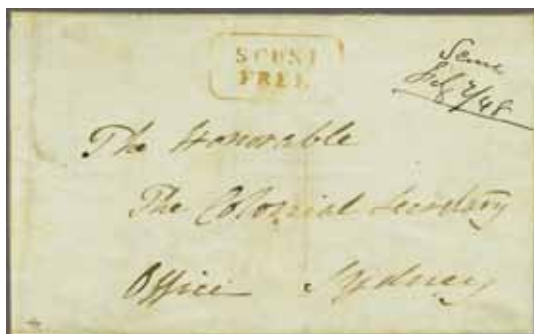 SCONE
FREE
Scone
July 7/48
The Honorable
The Colonial Secretary
Office Sydney